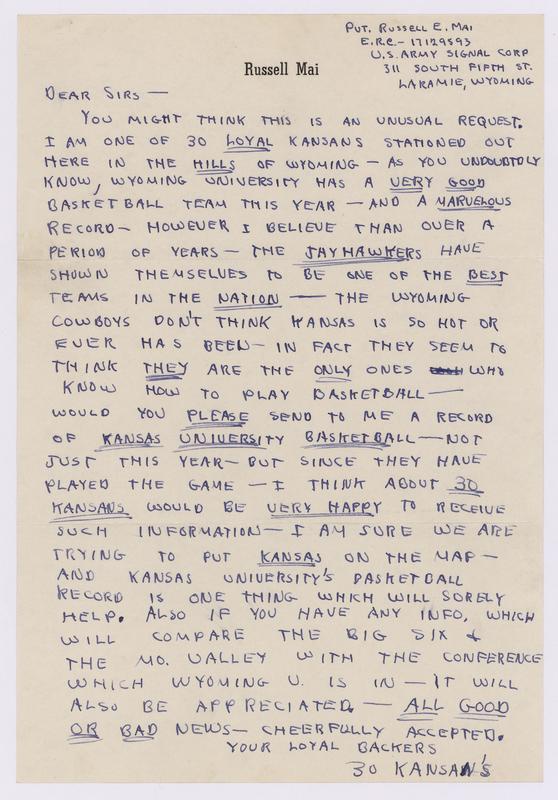 PVT. RUSSELL E. MAI
E.R.C.- 17129593
U.S. ARMY SIGNAL CORP
311 SOUTH FIFTH ST.
LARAMIE, WYOMING
Russell Mai
DEAR SIRS —
YOU MIGHT THINK THIS IS AN UNUSUAL REQUEST.
I AM ONE OF 30 LOYAL KANSANS STATIONED OUT
HERE IN THE HILLS OF WYOMING — AS YOU UNDOUBTDLY
KNOW, WYOMING UNIVERSITY HAS A VERY GOOD
BASKETBALL TEAM THIS YEAR — AND A MARVELOUS
RECORD — HOWEVER I BELIEVE THAN OVER A
PERIOD OF YEARS — THE JAYHAWKERS HAVE
SHOWN THEMSELVES TO BE ONE OF THE BEST
TEAMS IN THE NATION — THE WYOMING
COWBOYS DON'T THINK KANSAS IS SO HOT OR
EVER HAS BEEN — IN FACT THEY SEEM TO
THINK THEY ARE THE ONLY ONES WHO
KNOW HOW TO PLAY BASKETBALL —
WOULD YOU PLEASE SEND TO ME A RECORD
OF KANSAS UNIVERSITY BASKETBALL — NOT
JUST THIS YEAR — BUT SINCE THEY HAVE
PLAYED THE GAME — I THINK ABOUT 30
KANSANS WOULD BE VERY HAPPY TO RECEIVE
SUCH INFORMATION — I AM SURE WE ARE
TRYING TO PUT KANSAS ON THE MAP —
AND KANSAS UNIVERSITY'S BASKETBALL
RECORD IS ONE THING WHICH WILL SORELY
HELP. ALSO IF YOU HAVE ANY INFO, WHICH
WILL COMPARE THE BIG SIX &
THE MO. VALLEY WITH THE CONFERENCE
WHICH WYOMING U. IS IN — IT WILL
ALSO BE APPRECIATED. — ALL GOOD
OR BAD NEWS — CHEERFULLY ACCEPTED.
YOUR LOYAL BACKERS
30 KANSAN'S